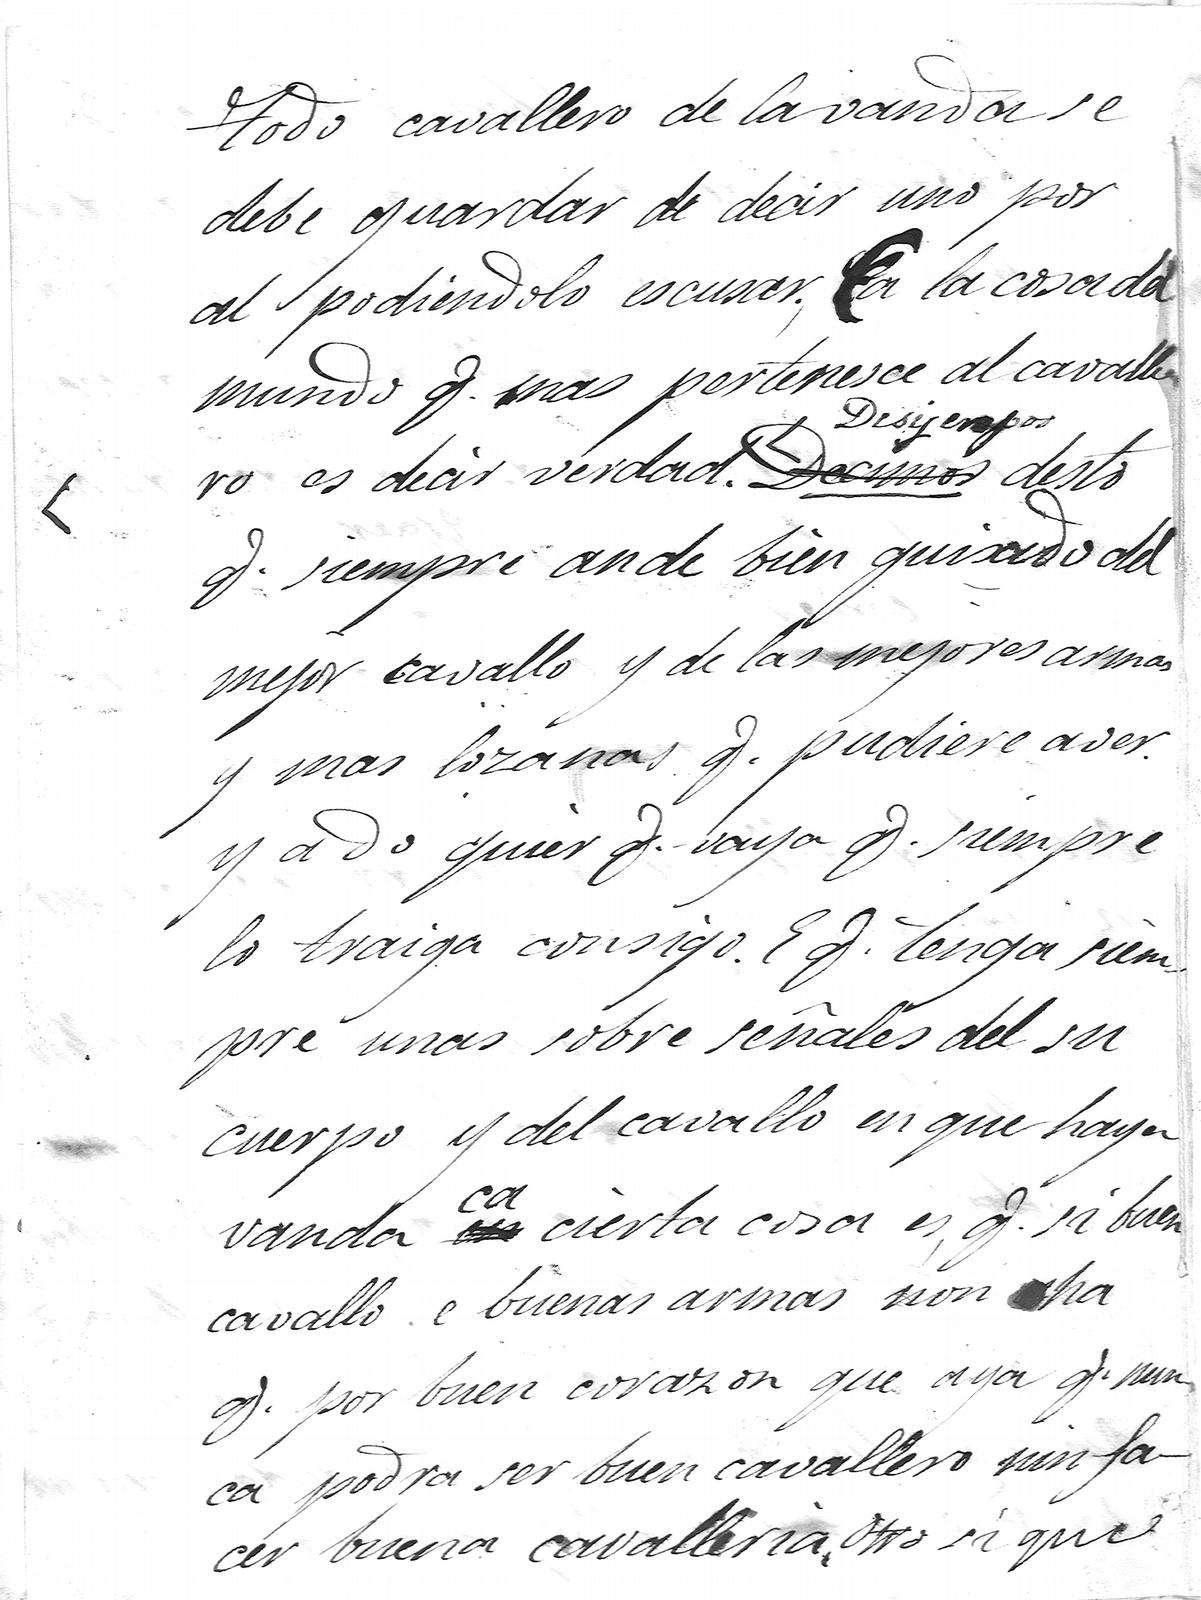 Todo cavallero de la vanda se
debe guardar de decir uno por
al podiendolo escusar, Ca la cosa del
mundo q. mas pertenesce al cavalle
Desijempos
ro es decir verdad. Decimos desto
q. siempre ande bien guixado del
mejor cavallo y de las mejores armas
y mas lozanas q. pudiere aver.
y a do quier q. vaya q. siempre
lo traiga consigo. E q. tenga siem-
pre unas sobre señales del su
cuerpo y del cavallo en que haya
ca
vanda cierta cosa es, q. si buen
cavallo e buenas armas non ha
q. por buen corazon que aya q. nun
ca podra ser buen cavallero nin fa-
cer buena cavalleria, Otro si que